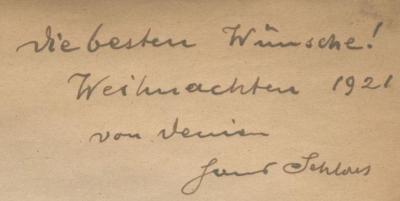 Die besten Wünsche!
Weihnachten 1921
von Deinem
Hans Schloss